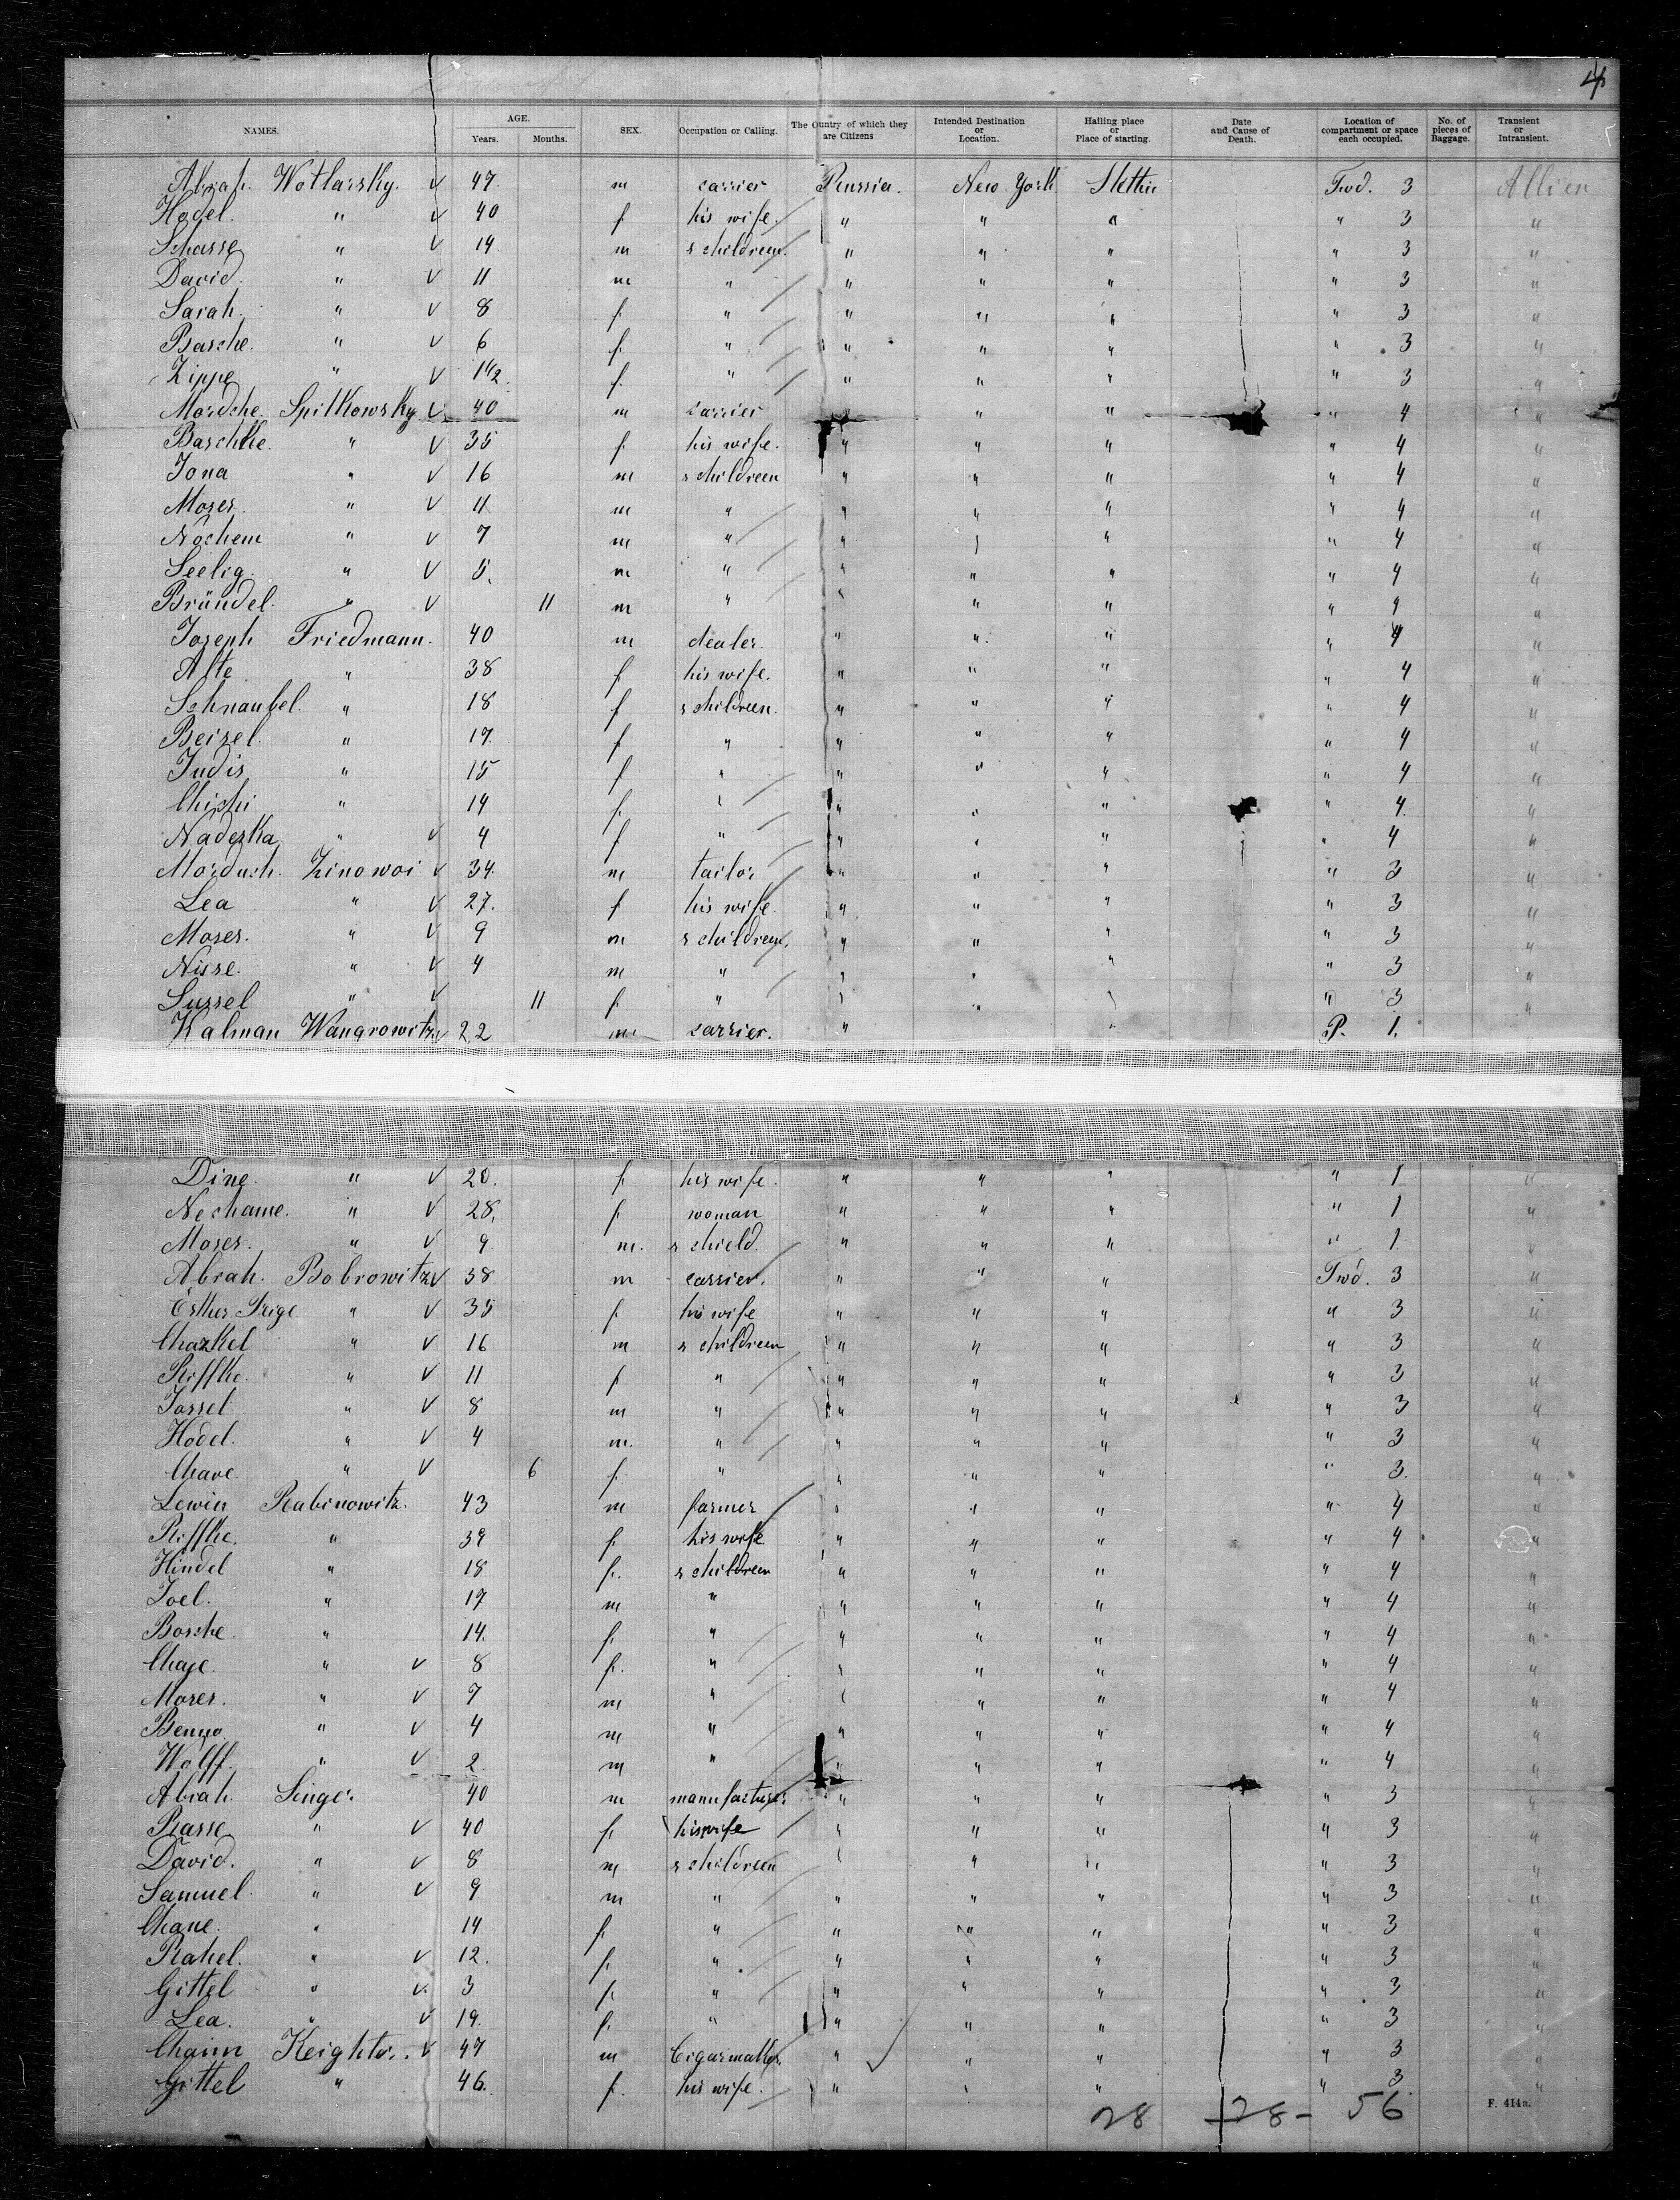 4
NAMES. AGE. Years. Months. SEX. Occupation or Calling. The Country of which they are Citizens Intended Destination or Location. Hailing place or Place of starting. Date and Cause of Death. Location of compartment or space each occupied. No. of pieces of Baggage. Transient or Intransient.
Abrah. Wotlarsky. v 47. m carrier Russia. New York Stettin Twd. 3 Allien
Hodel. " v 40 f. his wife. " " " " 3 "
Scharse " v 14 m s children. " " " " 3 "
David. " v 11 m " " " " " 3 "
Sarah. " v 8 f. " " " " " 3 "
Basche. " v 6 f. " " " " " 3 "
Zippe " v 1 1/2. f. " " " " " 3 "
Mordche. Spitkowsky. v 40 m carrier " " " 4 "
Baschke. " v 35 f. his wife. " " " " 4 "
Jona " v 16 m s children " " " " 4 "
Moses. " v 11 m " " " " " 4 "
Nochem " v 7 m " " " " " 4 "
Seelig. " v 5. m " " " " " 4 "
Bründel. " v 11 m " " " " " 4 "
Joseph Friedmann. 40 m dealer. " " " " 4 "
Alte " 38 f. his wife. " " " " 4 "
Schnaubel. " 18 f s children. " " " " 4 "
Beisel. " 17. f " " " " " 4 "
Judis " 15 f " " " " " 4 "
" 14 f. " " " " " 4. "
Nadezka " v 4 f " " " " " 4 "
Morduch. Zinowoi v 34. m tailor " " " " 3 "
Lea " v 27. f his wife. " " " " 3 "
Moses. " v 9 m s children. " " " " 3 "
Nisse. " v 4 m " " " " " 3 "
Sussel " v 11 f. " " " " " 3 "
Kalman Wangrowitz v 22 m carrier. " " P. 1.
Dine. " v 20. f. his wife. " " " " 1 "
Nechame. " v 28. f. woman " " " " 1 "
Moses. " v 9. m. s chield. " " " " 1 "
Abrah. Bobrowitz v 38 m carrier. " " " Twd. 3 "
Esther " v 35 f. his wife " " " " 3 "
Chazkel " v 16 m s children " " " " 3 "
Riffke. " v 11 f. " " " " " 3 "
Jossel " v 8 m " " " " " 3 "
Hodel. " v 4 m. " " " " " 3 "
Chave. " v 6 f. " " " " " 3. "
Lewin Rabinowitz. 43 m farmer " " " " 4 "
Riffke. " 39 f. his wife. " " " " 4 "
Hindel " 18 f. s children " " " " 4 "
Joel. " 17 m " " " " " 4 "
Bosche. " 14. f. " " " " " 4 "
Chaje. " v 8 f. " " " " " 4 "
Moses. " v 7 m " " " " " 4 "
Benno. " v 4 m " " " " " 4 "
Wolff. " v 2. m " " " " " 4 "
Abrah. Singer. 40 m manufacturer " " " " 3 "
Rasse " v 40 f. his wife " " " " 3 "
David. " v 8 m s children " " " " 3 "
Samuel. " v 9 m " " " " " 3 "
Chane. " 14 f. " " " " " 3 "
Rahel. " v 12. f. " " " " " 3 "
Gittel " v. 3 f. " " " " " 3 "
Lea. " v 19. f. " " " " " 3 "
Chaim v 47 m Cigarmaker " " " " 3 "
Gittel " 46. f. his wife. " " " " 3 "
28 28 - 56 F. 414a.